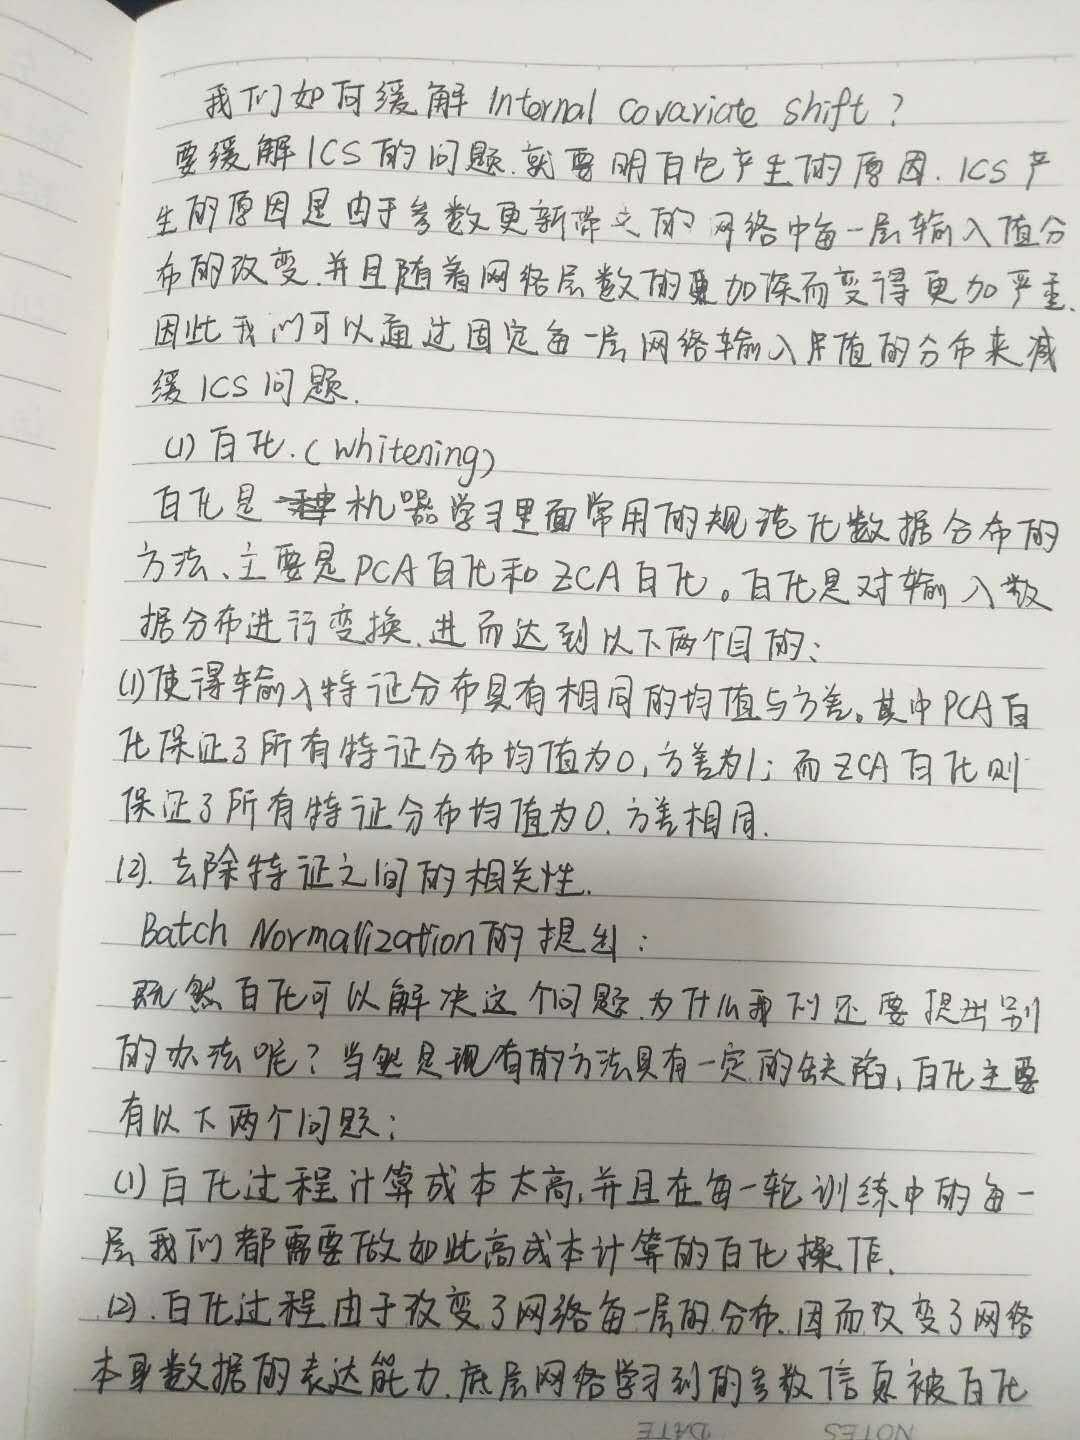 我们如何缓解 Internal covariate shift?
要缓解ICS的问题.就要明白它产生的原因.ICS产
生的原因是由于参数更新带来的网络中每一层输入值分
布的改变.并且随着网络层数的加深而变得更加严重.
因此我们可以通过固定每一层网络输入值的分布来减
缓ICS问题.
(1)白化.(Whitening)
白化是机器学习里面常用的规范化数据分布的
方法、主要是PCA白化和ZCA白化。白化是对输入数
据分布进行变换.进而达到以下两个目的:
(1)使得输入特征分布具有相同的均值与方差。其中PCA白
化保证了所有特征分布均值为0,方差为1;而ZCA白化则
保证了所有特征分布均值为0.方差相同.
(2).去除特征之间的相关性.
Batch Normalization的提出:
既然白化可以解决这个问题.为什么我们还要提出别
的办法呢?当然是现有的方法具有一定的缺陷,白化主要
有以下两个问题;
(1)白化过程计算成本太高,并且在每一轮训练中的每一
层我们都需要做如此高成本计算的白化操作.
(2).白化过程由于改变了网络每一层的分布.因而改变了网络
本身数据的表达能力.底层网络学习到的参数信息被白化
NOTES DATE